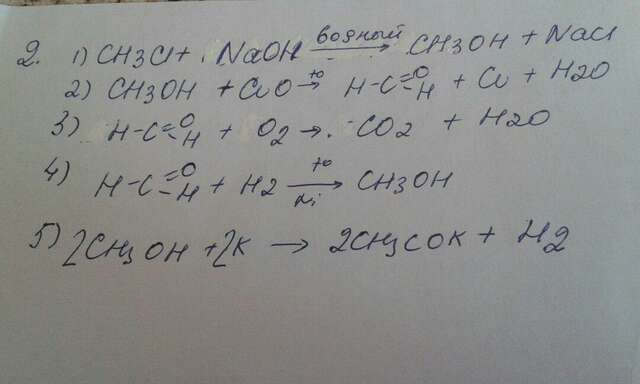 2. 1) CH3Cl + NaOH водный → CH3OH + NaCl
2) CH3OH + CuO t0 → H-C=O-H + Cu + H2O
3) H-C=O-H + O2 → CO2 + H2O
4) H-C=O-H + H2 t0 → Ni CH3OH
5) 2CH3OH + 2K → 2CH3COK + H2